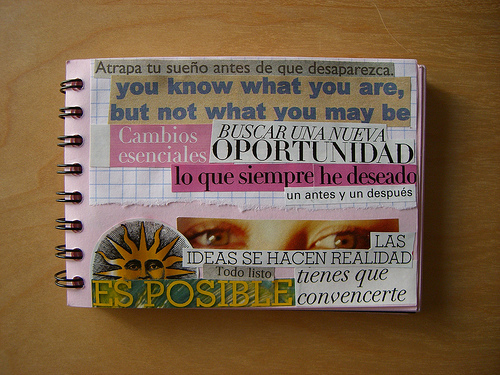 Atrapa tu sueño antes de que desaparezca.
you know what you are,
but not what you may be
Cambios
esenciales
BUSCAR UNA NUEVA
OPORTUNIDAD
lo que siempre he deseado
un antes y un después
LAS
IDEAS SE HACEN REALIDAD
Todo listo
ES POSIBLE
tienes que
convencerte